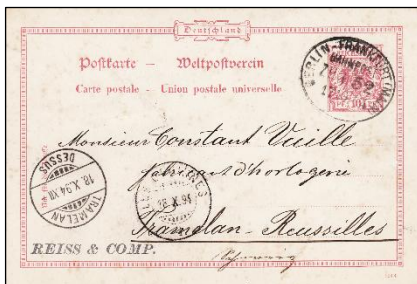 Deutschland
Postkarte — Weltpostverein
Carte postale – Union postale universelle
BERLIN-FRANKFURT
Monsieur Constant Vuille
fabricant d'horlogerie
Tramelan-Reussilles
TRAMELAN
18.X.94.XII
DESSUS
18.X.94
REISS & COMP.